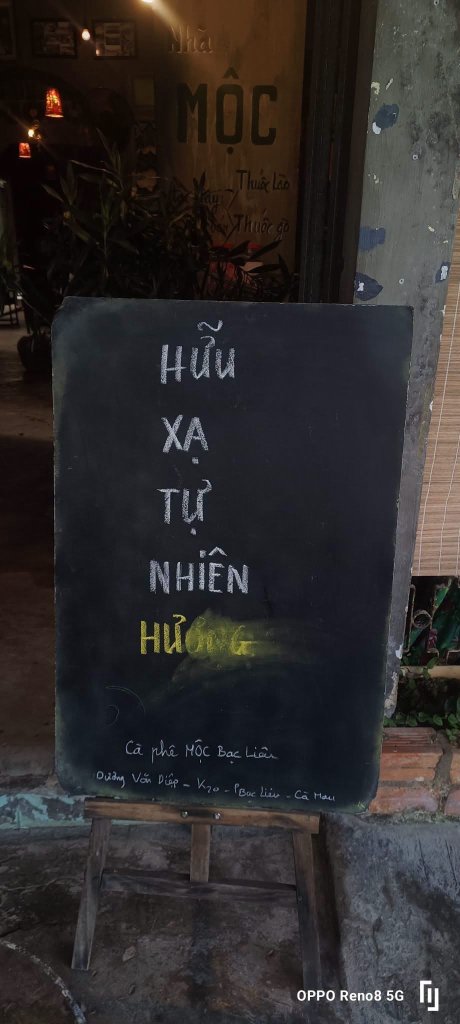 Nhà
MỘC
Thuốc lào
Thuốc gò
HỮU
XẠ
TỰ
NHIÊN
HƯƠNG
Cà phê MỘC Bạc Liêu
Dương Văn Diệp - K20 - P Bạc Liêu - Cà Mau
OPPO Reno8 5G